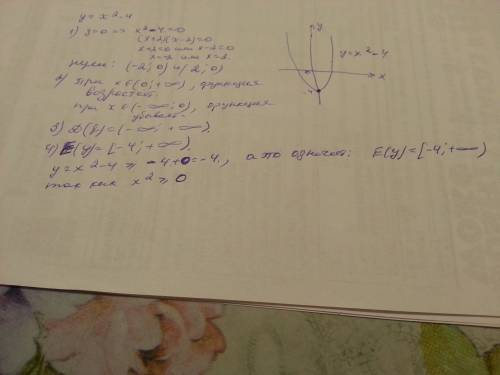 y = x²-4
1) y=0 => x²-4=0
(x+2)(x-2)=0
x+2=0 или x-2=0
x=-2 или x=2
Нули: (-2;0) и (2;0)
2) При x∈(0;+∞), функция
возрастает.
при x∈(-∞;0), функция
убывает.
3) D(y)=(-∞;+∞).
4) E(y)=[-4;+∞).
y=x²-4 ≥ -4+0=-4, а это означает: E(y)=[-4;+∞)
так как x² ≥ 0
y
y=x²-4
x
-4